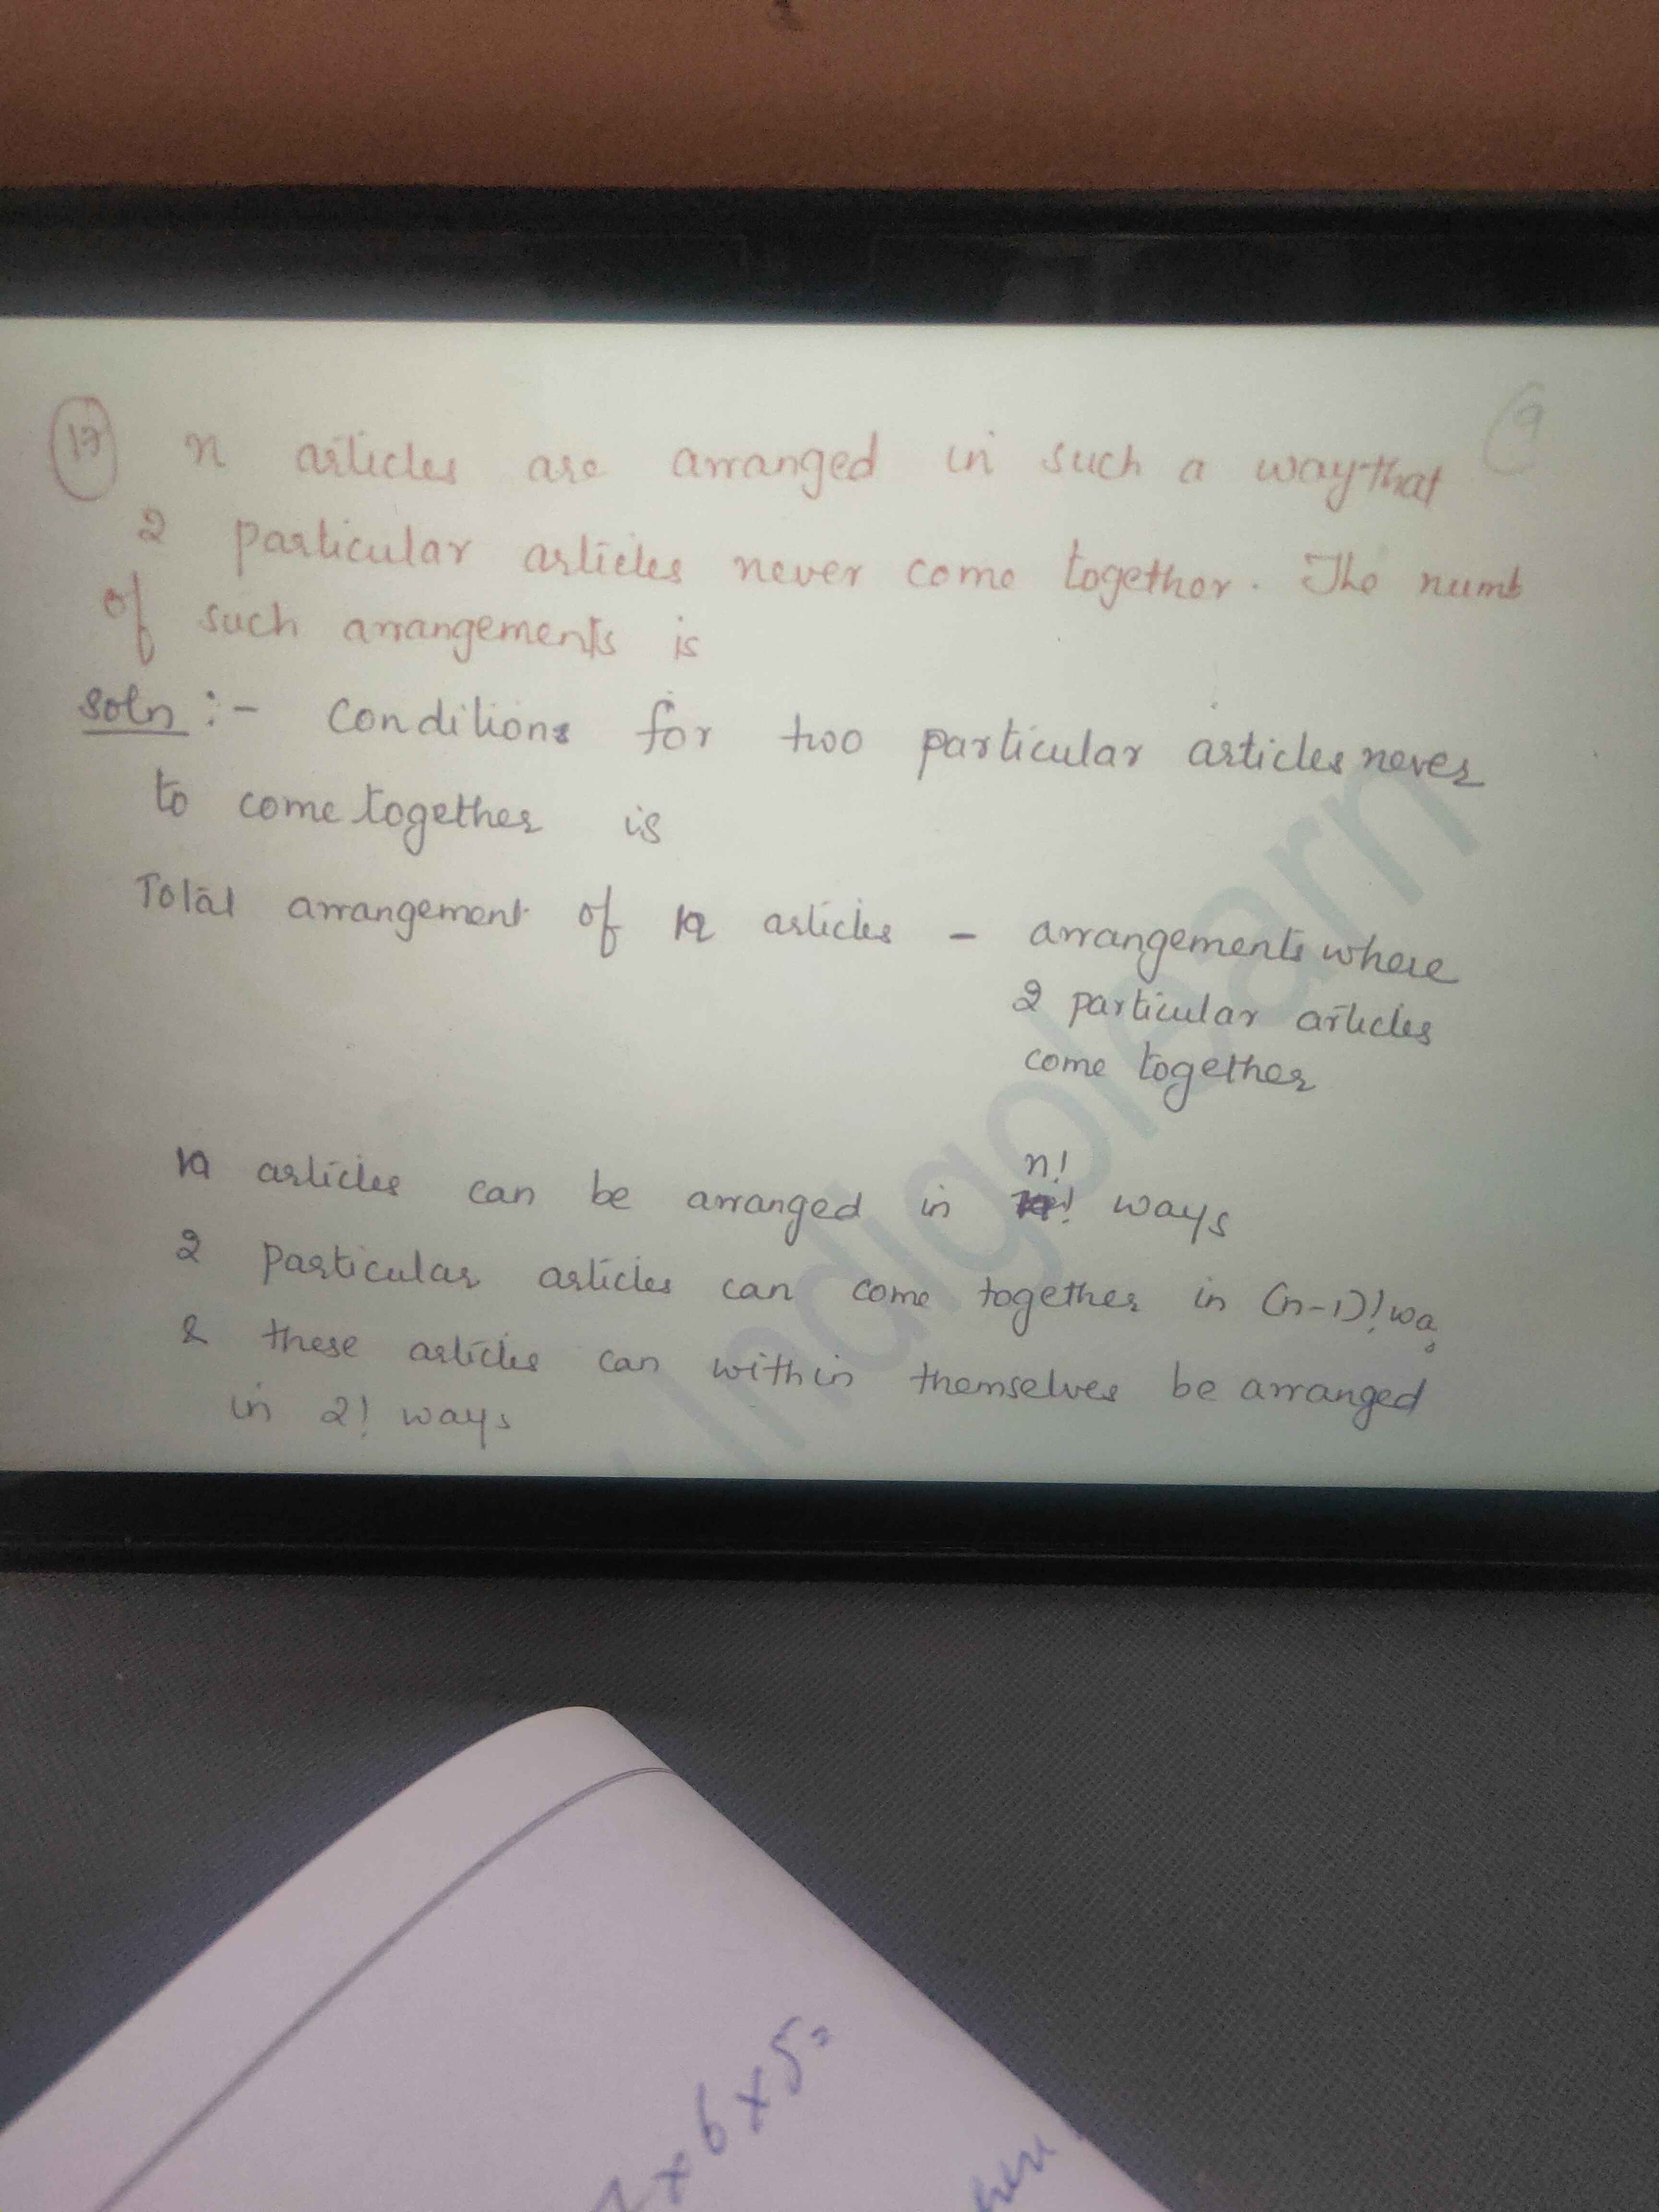 17
9
n articles are arranged in such a way that
2 particular articles never come together. The numb
of such arrangements is
Soln :- Conditions for two particular articles never
to come together is
Total arrangement of n articles - arrangements where
2 particular articles
come together
n!
n articles can be arranged in n! ways
2 particular articles can come together in (n-1)! wa
& these articles can within themselves be arranged
in 2! ways
Indigolearn
x6x5=